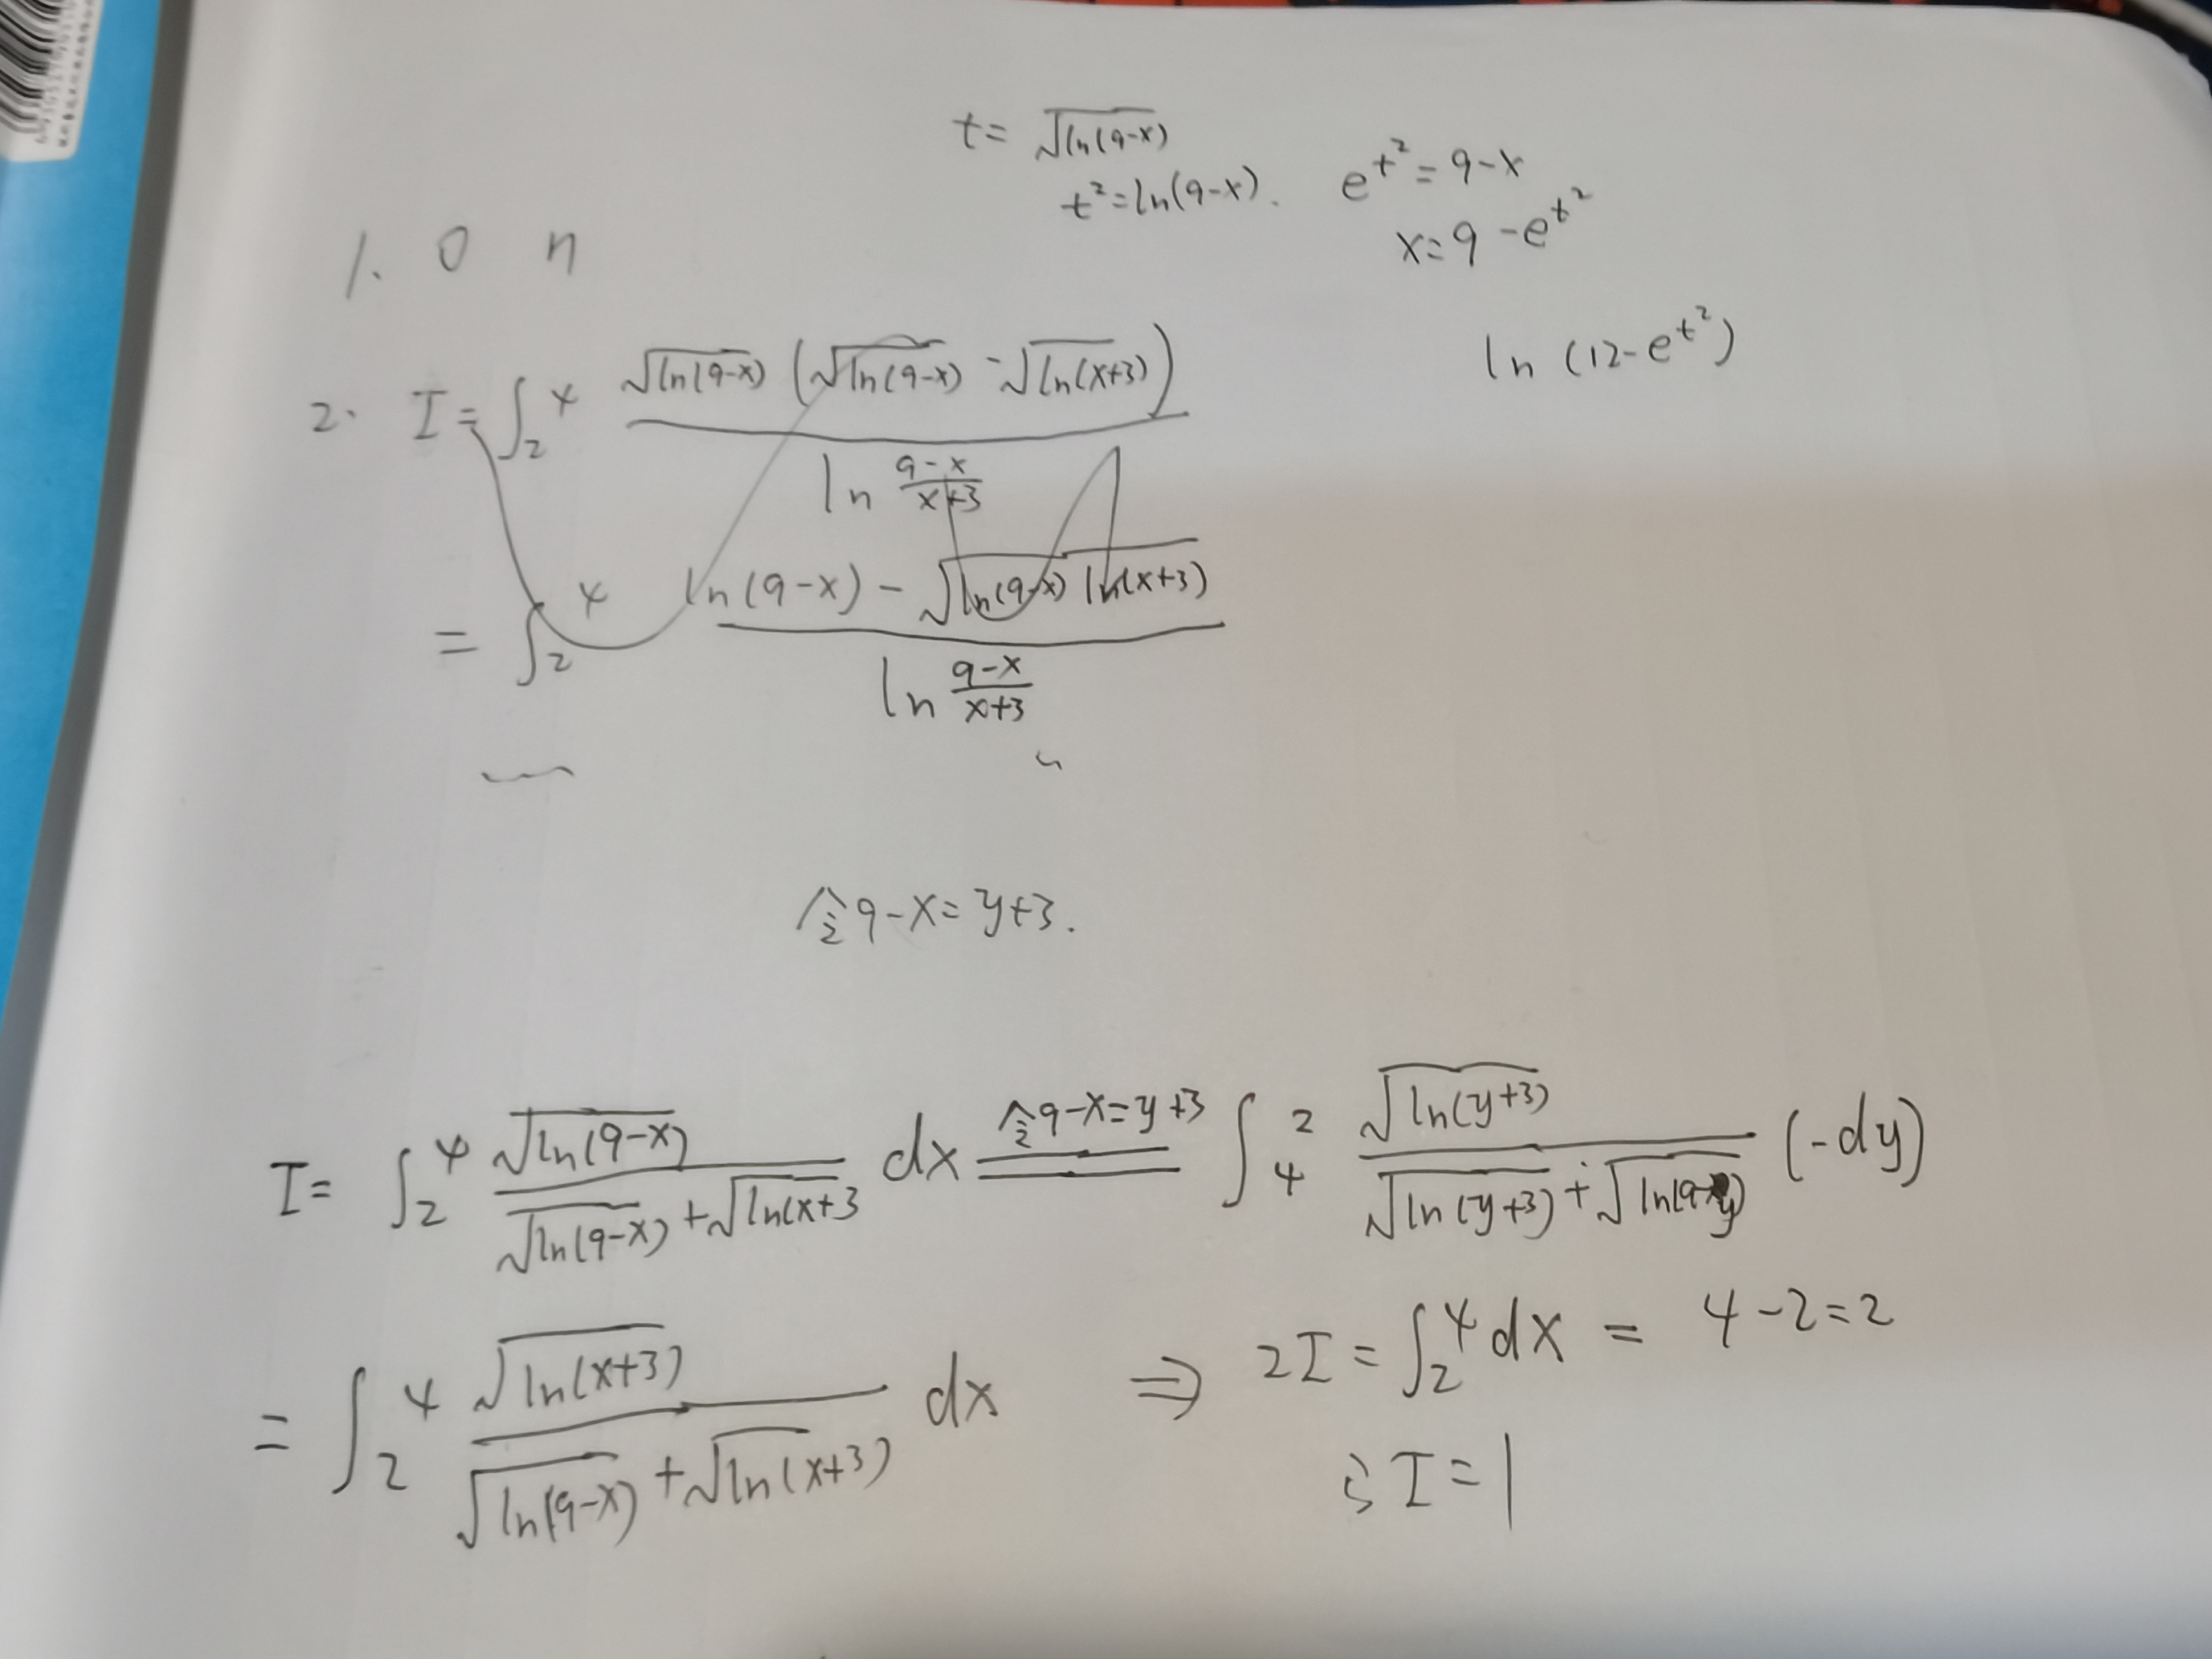 t= √ln(9-x)
t²=ln(9-x). e^t²=9-x
x=9-e^t²
1. 0 n
ln (12-e^t²)
2. I=∫₂⁴ √ln(9-x) (√ln(9-x) -√ln(x+3)) / ln (9-x)/(x+3)
=∫₂⁴ ln(9-x) - √ln(9-x) ln(x+3) / ln (9-x)/(x+3)
令9-x=y+3.
I= ∫₂⁴ √ln(9-x) / √ln(9-x) +√ln(x+3 dx 令9-x=y+3 ∫₄² √ln(y+3) / √ln(y+3) + √ln(9-y) (-dy)
= ∫₂⁴ √ln(x+3) / √ln(9-x) +√ln(x+3) dx ⇒ 2I=∫₂⁴dx = 4-2=2
∴I=1